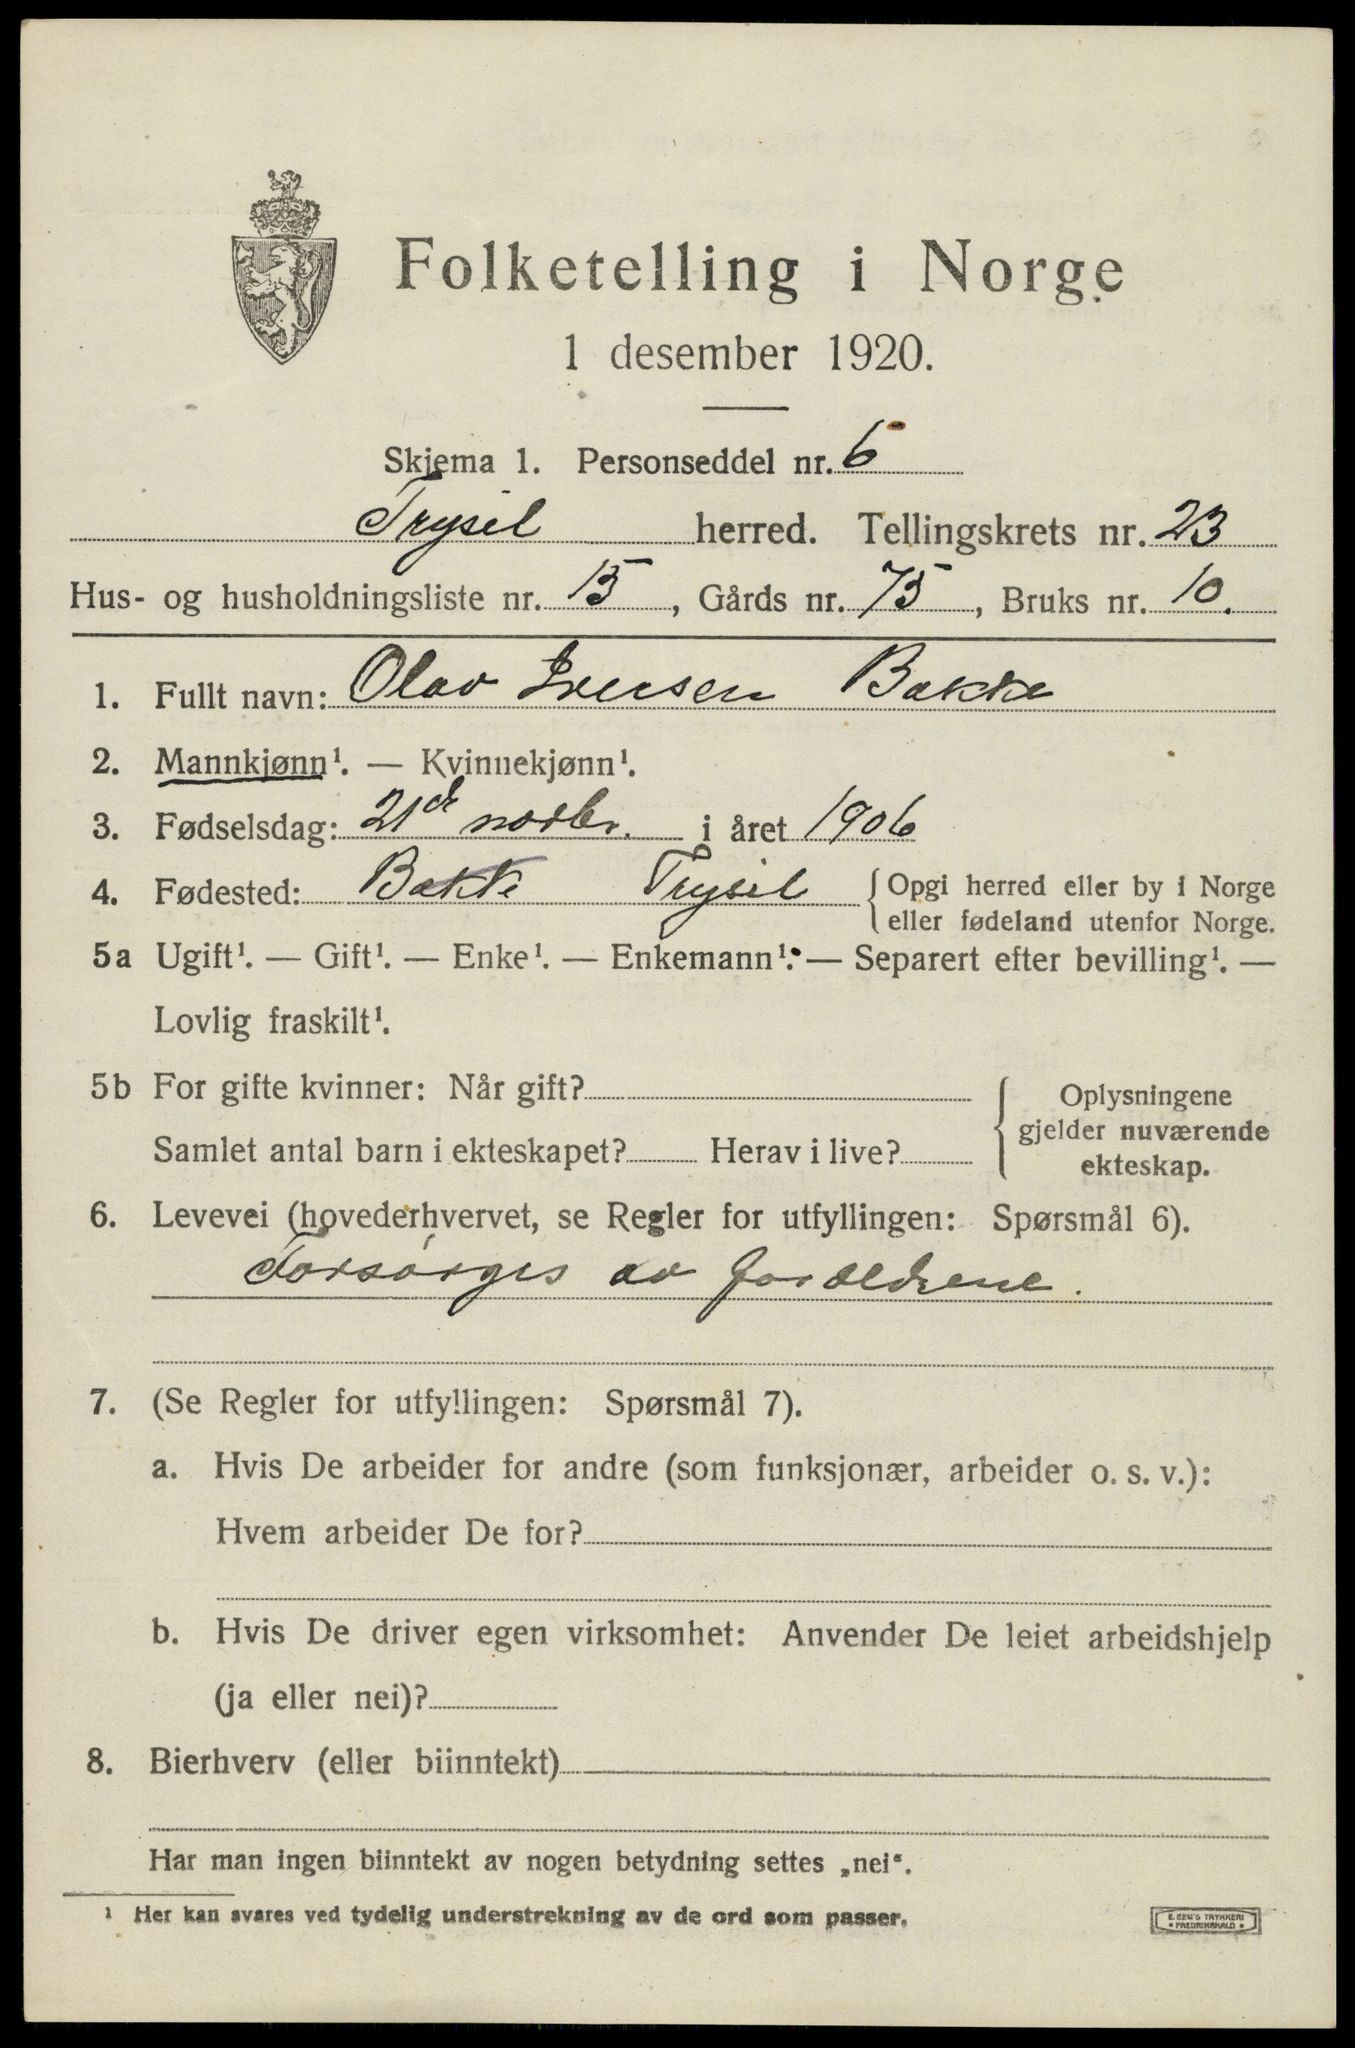 Folketelling i Norge
1 desember 1920.
Skjema 1. Personseddel nr. 6
Trysil herred. Tellingskrets nr. 23
Hus- og husholdningsliste nr. 15, Gårds nr. 75, Bruks nr. 10.
1. Fullt navn: Olav Iversen Bakke
2. Mannkjønn¹. — Kvinnekjønn¹.
3. Fødselsdag: 21de novbr. i året 1906
4. Fødested: Bakke Trysil { Opgi herred eller by i Norge
eller fødeland utenfor Norge.
5a Ugift¹. — Gift¹. — Enke¹. — Enkemann¹. — Separert efter bevilling¹. —
Lovlig fraskilt¹.
5b For gifte kvinner: Når gift?
Samlet antal barn i ekteskapet? Herav i live?
{ Oplysningene
gjelder nuværende
ekteskap.
6. Levevei (hovederhvervet, se Regler for utfyllingen: Spørsmål 6).
Forsørges av foreldrene.
7. (Se Regler for utfyllingen: Spørsmål 7).
a. Hvis De arbeider for andre (som funksjonær, arbeider o. s. v.):
Hvem arbeider De for?
b. Hvis De driver egen virksomhet: Anvender De leiet arbeidshjelp
(ja eller nei)?
8. Bierhverv (eller biinntekt)
Har man ingen biinntekt av nogen betydning settes „nei“.
¹ Her kan svares ved tydelig understrekning av de ord som passer.
E. SEM'S TRYKKERI
• FREDRIKSHALD •